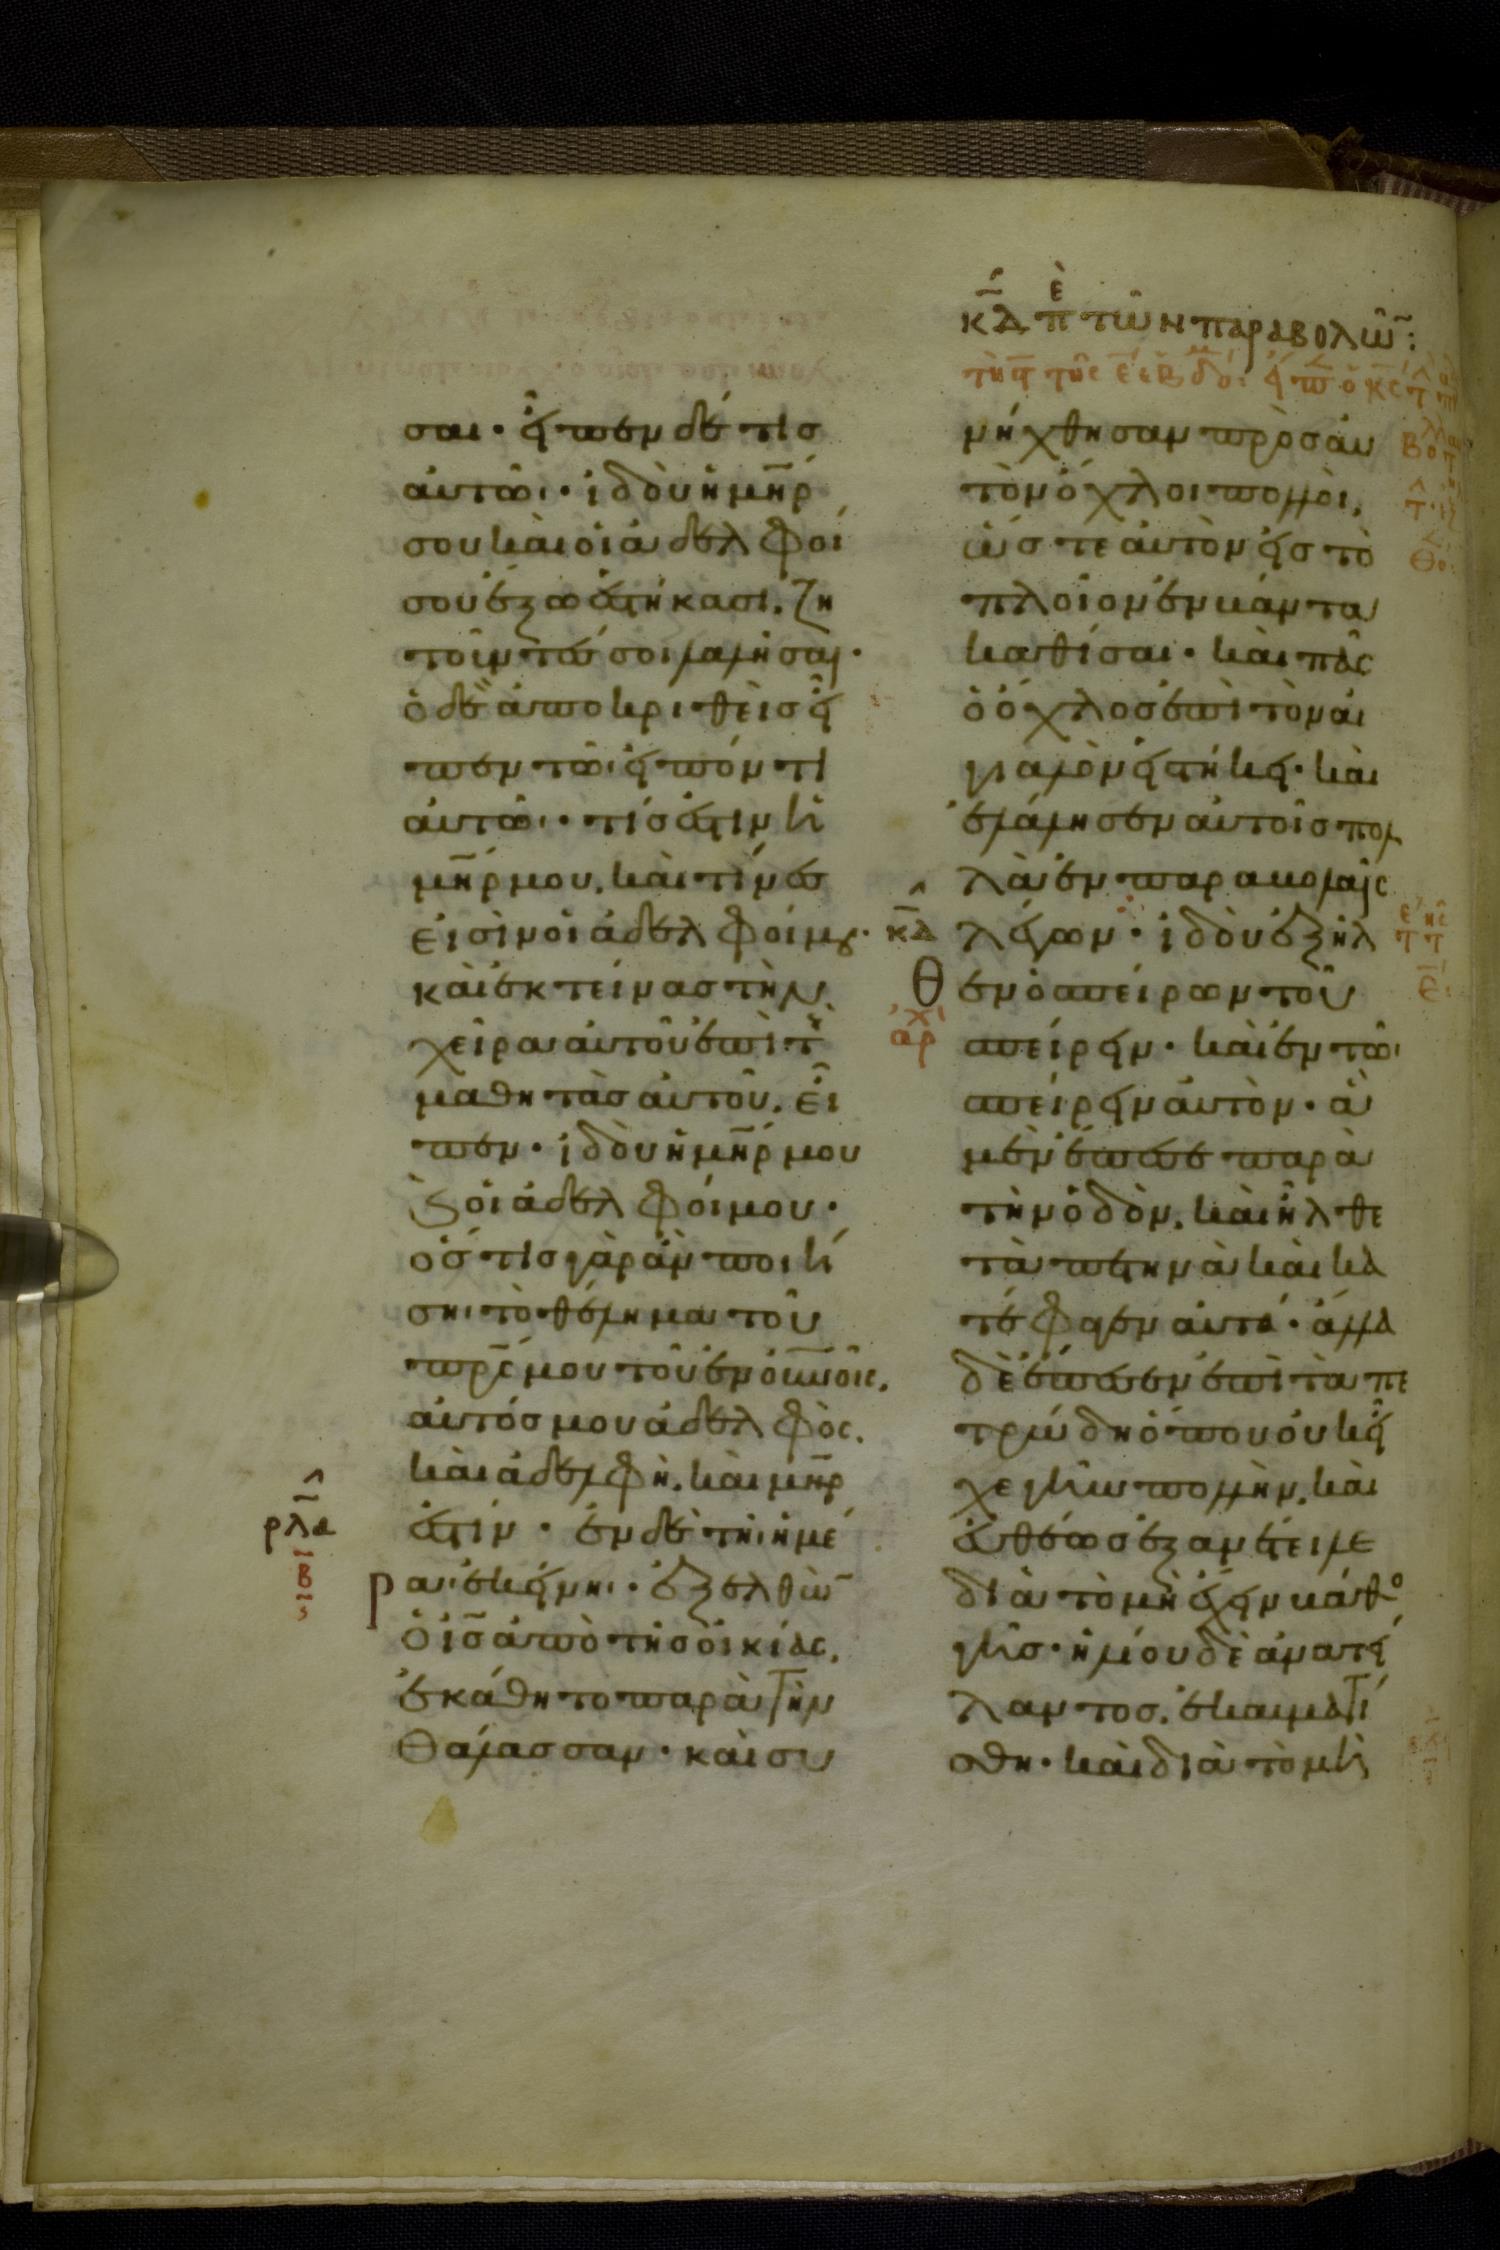 κ̅δ̅ πε τῶν παραβολῶ̅:
σαι· εἶπεν δέ τις
αὐτῶι· ἰδοὺ ἡ μη̅ρ
σου καὶ οἱ ἀδελφοί
σου ἔξω ἑστήκασι. ζη
τοῦντές σοι λαλῆσαι·
ὁ δὲ ἀποκριθεὶς εἶ
πεν τῶι εἰπόντι
αὐτῶι· τίς ἐστιν ἡ
μη̅ρ μου. καὶ τίνες
εἰσὶν οἱ ἀδελφοί μου·
καὶ ἐκτείνας τὴν
χεῖρα αὐτοῦ ἐπὶ τ
μαθητὰς αὐτοῦ. εἶ
πεν· ἰδοὺ ἡ μη̅ρ μου
ϗ οἱ ἀδελφοί μου·
ὅστις γὰρ ἂν ποιή
σηι τὸ θέλημα τοῦ
πρ̅ς μου τοῦ ἐν οὐ̅νοῖς.
αὐτός μου ἀδελφὸς.
καὶ ἀδελφὴ. καὶ μη̅ρ
ρλα ἐστίν· ἐν δὲ τῆι ἡμέ
β̅ ραι ἐκείνηι· ἐξελθὼ̅
ὁ ι̅ς ἀπὸ τῆς οἰκίας.
ἐκάθητο παρὰ τὴν
θάλασσαν· καὶ συ
νήχθησαν πρὸς αὐ
τὸν ὄχλοι πολλοὶ.
ὥστε αὐτὸν εἰς τὸ
πλοῖον ἐμβάντα
καθίσαι· καὶ πᾶς
ὁ ὄχλος ἐπὶ τὸν αἰ
γιαλὸν εἱστήκει· καὶ
ἐλάλησεν αὐτοῖς πολ
λὰ ἐν παραβολαῖς
κ̅δ̅ λέγων· ἰδοὺ ἐξῆλ
θ εν ὁ σπείρων τοῦ
αρχ σπείρειν· καὶ ἐν τῶι
σπείρειν αὐτὸν· ἃ
μὲν ἔπεσε παρὰ
τὴν ὁδὸν. καὶ ἦλθε
τὰ πετηνὰ καὶ κα
τέφαγεν αὐτά· ἄλλα
δὲ ἔπεσεν ἐπὶ τὰ πε
τρώδη ὅπου οὐκ εἶ
χε γῆν πολλὴν. καὶ
εὐθέως ἐξανέτειλε
διὰ τὸ μὴ ἔχειν βάθο
γῆς· ἡλίου δὲ ἀνατεί
λαντος. ἐκαυματί
σθη· καὶ διὰ τὸ μὴ